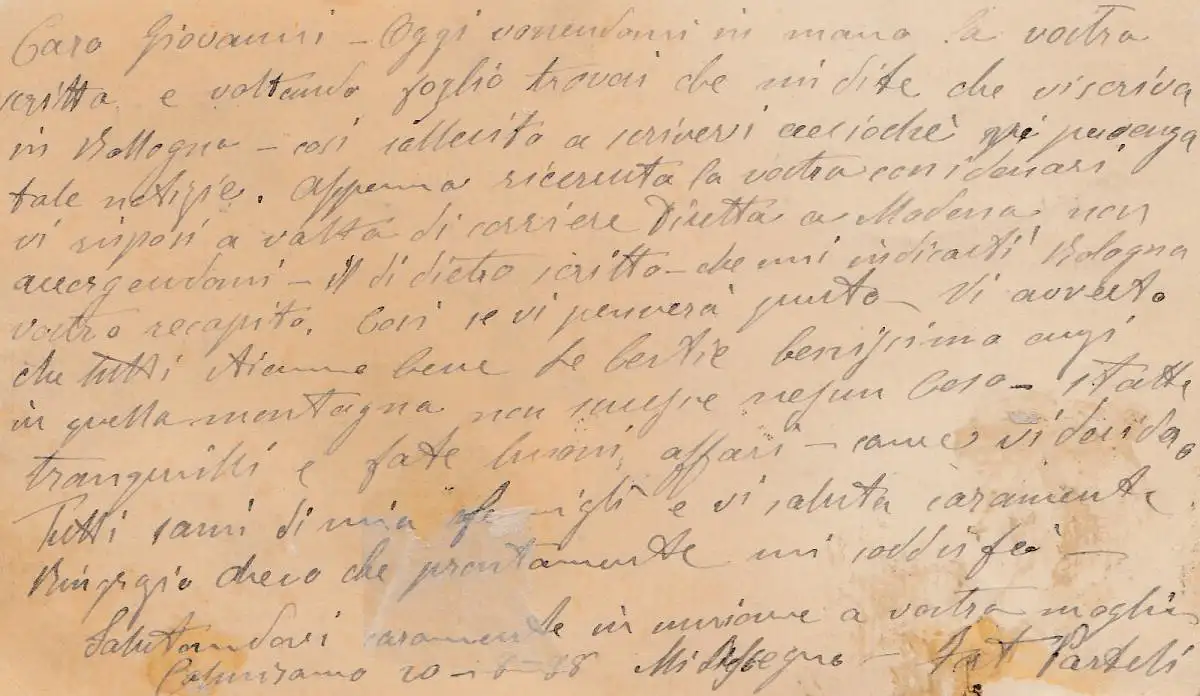 Caro Giovanni - Oggi venendomi in mano la vostra
scritta e voltando foglio trovai che mi dite che vi scriva
in Bollogna - cosi sollecito a scrivervi acciochè
tale notizie. Appenna ricevuta la vostra con i denari
vi risposi a volta di corriere Diretta a Modena non
accorgendomi - il di dietro scritto - che mi indicasti Bologna
vostro recapito. Cosi se vi penserà - Vi averto
che Tutti stanno bene Le bestie benissimo anzi
in quella montagna non nessun Caso - statte
tranquilli e fate buoni affari - come vi desidero
Tutti sani di mia e vi saluta caramente
che prontamente mi -
Salutandovi caramente in unione a vostra moglie
20 - 8 - Mi segno -